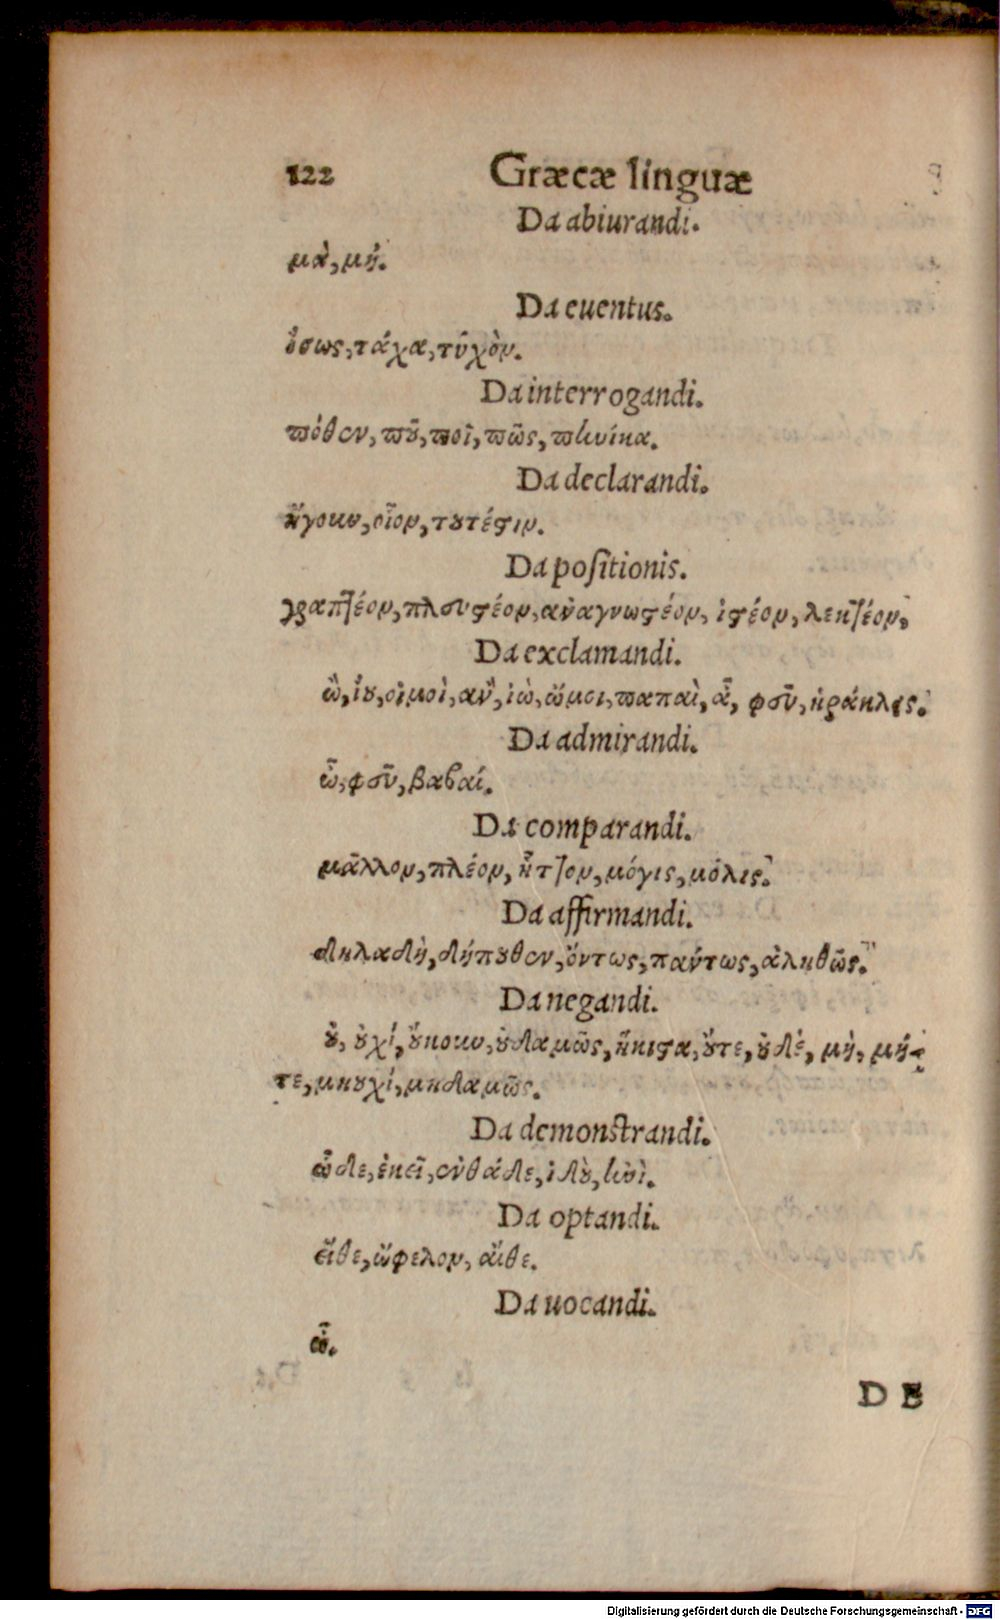 122 Græcæ linguæ
Da abiurandi.
μὰ, μή.
Da euentus.
ἴσως, τάχα, τύχὸν.
Da interrogandi.
πόθεν, ποῦ, ποῖ, πῶς, πηνίκα.
Da declarandi.
ἤγουν, οἷον, τουτέστιν.
Da positionis.
γραπτέον, πλευστέον, ἀναγνωστέον, ἰστέον, λεκτέον,
Da exclamandi.
ὢ, ἰοὺ, οἰμοὶ, αὒ, ἰὼ, ὤμοι, παπαὶ, ἆ, φεῦ, ἡράκλεις.
Da admirandi.
ὦ, φεῦ, βαβαί.
Da comparandi.
μᾶλλον, πλέον, ἧττον, μόγις, μόλις.
Da affirmandi.
δηλαδὴ, δήπουθεν, ὄντως, πάντως, ἀληθῶς.
Da negandi.
οὐ, οὐχί, οὔκουν, οὐδαμῶς, ἥκιστα, οὔτε, οὐδέ, μὴ, μή-
τε, μηουχί, μηδαμῶς.
Da demonstrandi.
ὧδε, ἐκεῖ, ἐνθάδε, ἰδοὺ, ἠνὶ.
Da optandi.
εἴθε, ὤφελον, αἴθε.
Da uocandi.
ὦ.
D E
Digitalisierung gefördert durch die Deutsche Forschungsgemeinschaft - DFG